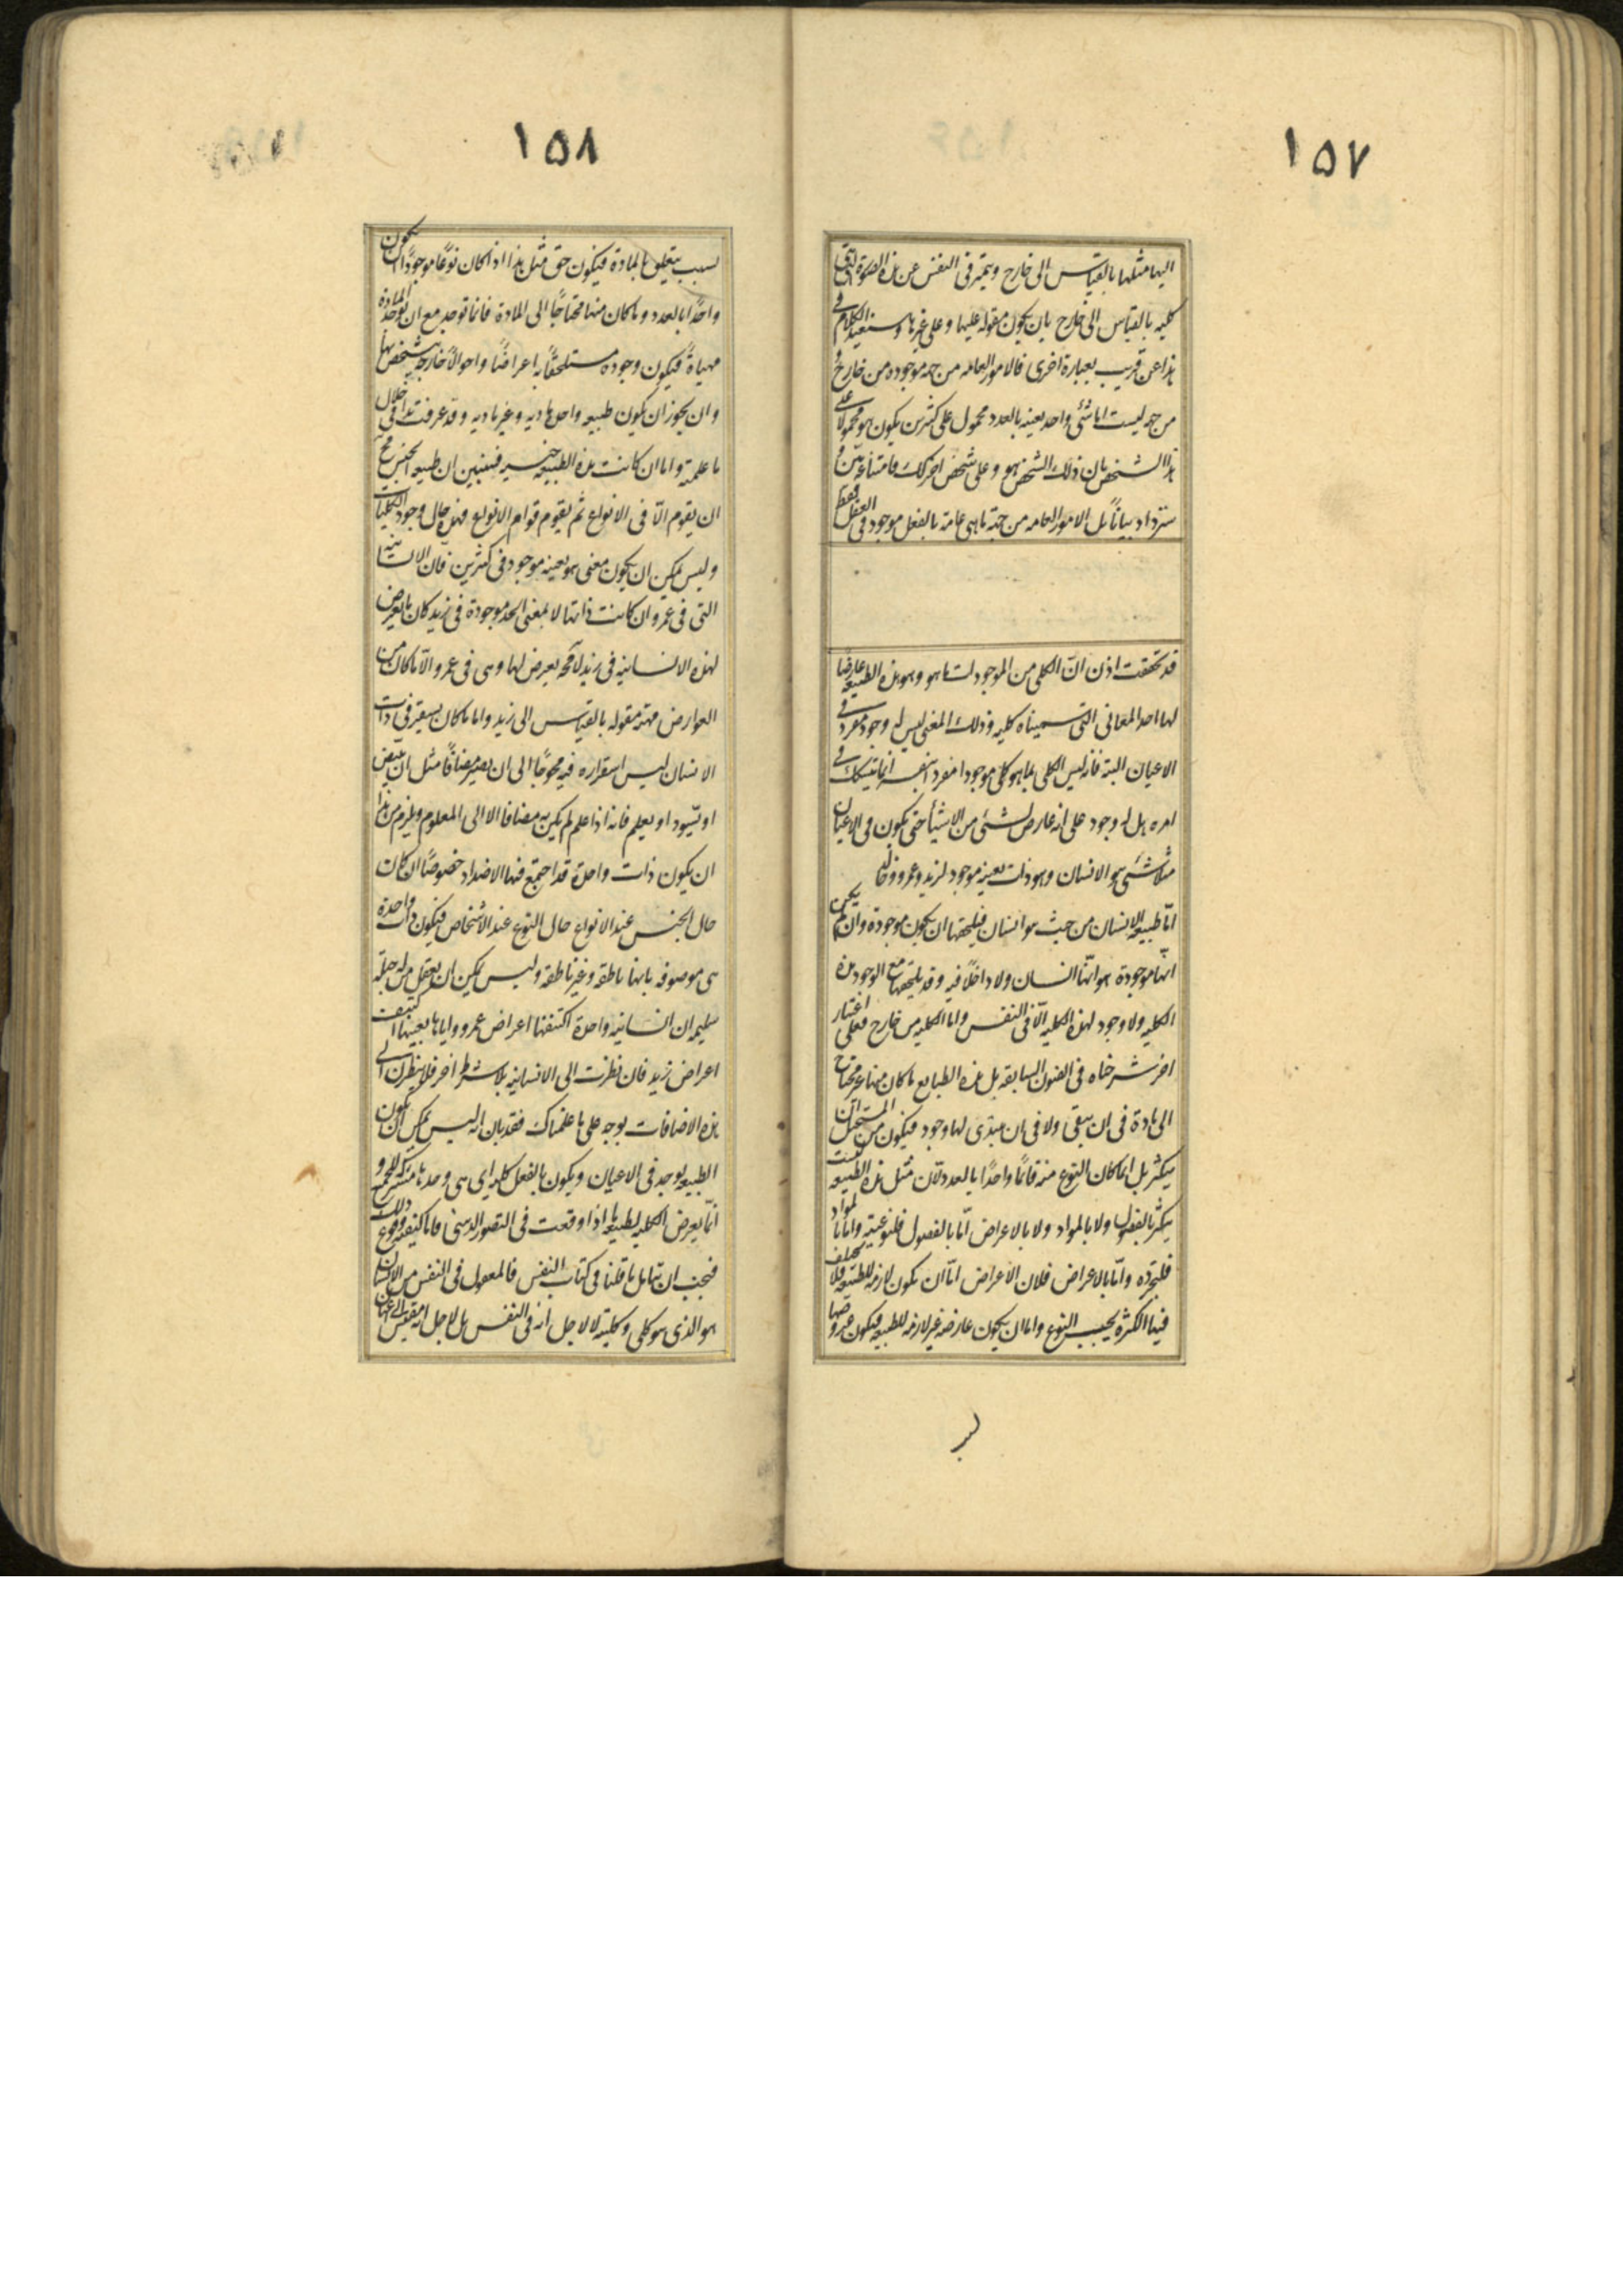 ١٥٧
اليها مثلها بالقياس الى خارج ويتميز فى النفس عن هذه الصورة التى
كليه بالقياس الى خارج بان يكون مقوله عليها وعلى غيرها وسنعيد الكلام فى
هذا عن قريب بعبارة اخرى فالامور العامه من جهه موجوده من خارج و
من جهه ليست اما شئ واحد بعينه بالعدد محمول على كثيرين يكون هو محمولا على
هذا الشخص بان ذلك الشخص هو وعلى شخص اخر كذلك فامتناعه بيّن و
ستزداد بيانًا بل الامور العامه من جهة ما هى عامة بالفعل موجود فى العقل فقط
قد تحققت اذن انّ الكلى من الموجودات ما هو وهو هذه الطبيعه عارضا
لها احد المعانى التى سميناه كليه وذلك المعنى ليس له وجود مفرد فى
الاعيان البته فانه ليس الكلى بما هو كلى موجودا مفردا بنفسه انما يتشكك فى
امره هل له وجود على انه عارض لشئ من الاشيأ حتى يكون فى الاعيان
مثلا شئ هو الانسان وهو ذات بعينه موجود لزيد وعمرو وخالد
امّا طبيعه الانسان من حيث هو انسان فيلحقها ان يكون موجودة وان لم يكن
انّها موجودة هو انّها انسان ولا داخلًا فيه وقد يلحقها مع الوجود هذه
الكليه ولا وجود لهذه الكليه الّا فى النفس واما الكليه من خارج فعلى اعتبار
اخر شرحناه فى الفنون السابقه بل هذه الطبايع ما كان منها غير محتاج
الى مادة فى ان يبقى ولا فى ان يبتدى لها وجود فيكون من المستحيل ان
يتكثر بل انما كان النوع منه قائمًا واحدًا بالعدد لانّ مثل هذه الطبيعه ليست
يتكثر بالفصول ولا بالمواد ولا بالاعراض امّا بالفصول فلنوعيته واما بالمواد
فلتجرّده وامّا بالاعراض فلان الاعراض امّا ان يكون لازمه للطبيعه فلا يختلف
فيها الكثره بحسب النوع واما ان يكون عارضه غير لازمه للطبيعه فيكون عروضها
لسبب
١٥٨
لسبب يتعلق بالمادة فيكون حق مثل هذا اذا كان نوعًا موجودًا ان يكون
واحدًا بالعدد وما كان منها محتاجًا الى المادة فانما توجد مع ان توجد المادة
مهيأة فيكون وجوده مستلحقًا به اعراضًا واحوالًا خارجه يتشخص بها
وان يجوز ان يكون طبيعه واحدة ماديه وغير ماديه وقد عرفت هذا فى خلال
ما علمته واما ان كانت هذه الطبيعه جنسيه فسنبين ان طبيعه الجنس مح
ان يقوم الّا فى الانواع ثم يقوم قوام الانواع فهذه حال وجود الكليات
وليس يمكن ان يكون معنى هو بعينه موجود فى كثيرين فان الانسانية
التى فى عمرو ان كانت ذاتها لا بمعنى الحد موجودة فى زيد كان ما يعرض
لهذه الانسانيه فى زيد لا محه يعرض لها وهى فى عمرو الّا ما كان من
العوارض مهيته مقوله بالقياس الى زيد واما ما كان يستقر فى ذات
الانسان ليس استقراره فيه محوجًا الى ان يصير مضافًا مثل ان يبيض
او يسّود او يعلم فانه اذا علم لم يكن به مضافا الا الى المعلوم ويلزم من هذا
ان يكون ذات واحدة قد اجتمع فيها الاضداد خصوصًا ان كان
حال الجنس عند الانواع حال النوع عند الاشخاص فيكون ذات واحدة
هى موصوفه بانها ناطقه وغير ناطقه وليس يمكن ان يعقل من له جبلّه
سليمه ان انسانيه واحدة اكتنفها اعراض عمرو واياها بعينها اكتنفت
اعراض زيد فان نظرت الى الانسانيه بلا شرط اخر فلا ينظرن الى
هذه الاضافات بوجه على ما علمناك فقد بان انه ليس يمكن ان يكون
الطبيعه يوجد فى الاعيان ويكون بالفعل كليه اى هى وحدها مشتركه للجميع و
انّما يعرض الكليه لطبيعه ما اذا وقعت فى التصور الذهنى واما كيفيه وقوع ذلك
فيجب ان يتامل ما قلنا فى كتاب النفس فالمعقول فى النفس من الانسان
هو الذى هو كلى وكليته لا لاجل انه فى النفس بل لاجل انه مقيس الى اعيان